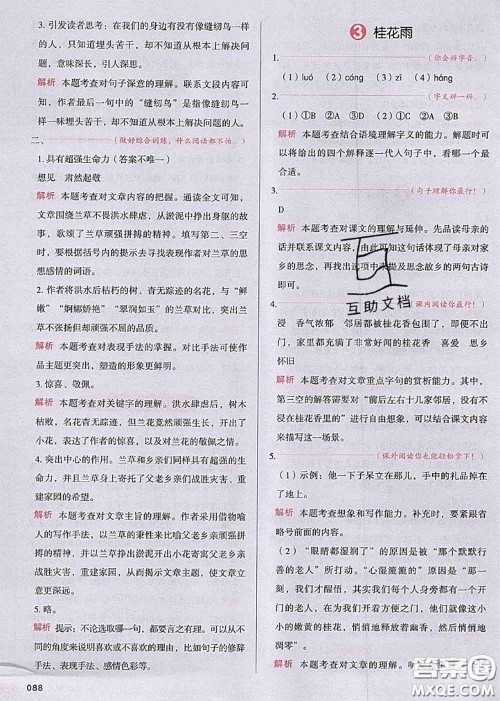 3. 引发读者思考：在我们的身边有没有像缝纫鸟一样的人，只知埋头苦干，却不知从根本上解决问题，意味深长，引人深思。
解析 本题考查对句子深意的理解。联系文段内容可知，作者最后一句中的“缝纫鸟”是指像缝纫鸟一样一味埋头苦干，却不从根本上解决问题的人。
二、（做好综合训练，什么阅读都不怕。）
1. 具有超强生命力（答案不唯一）
想见 肃然起敬
解析 本题考查对文章内容的把握。通读全文可知，文章围绕兰草不畏洪水肆虐，从淤泥中挣出身躯的故事，歌颂了兰草顽强拼搏的精神。填写第二、三空时，要根据括号内的提示去寻找表现作者对兰草的情感的词语。
2. 作者将洪水后枯朽的树、杳无踪迹的名花，与“鲜嫩”“婀娜娇艳”“翠润如玉”的兰草作对比，更体现了小草外表纤弱但却顽强不屈的品质。
解析 本题考查对表现手法的掌握。对比手法可使作品主题更突出，塑造的形象更鲜明。
3. 惊喜、敬佩。
解析 本题考查对关键字的理解。洪水肆虐后，树木枯败，名花杳无踪迹，但兰草却顽强地生存，开出了小花，表达了作者的惊喜，以及对兰草的敬佩。
4. 突出中心的作用。兰草和乡亲们同样具有生命力超强的品质，作者在兰草身上寄托了父老乡亲们能战胜灾害、重建家园的希望。
解析 本题考查对文章主旨的理解。作者采用借物喻人的写作手法，以兰草的秉性来比喻父老乡亲顽强拼搏的精神，并以兰草淤泥中开出小花寄寓父老乡亲战胜灾害、重建家园。因此，文章写兰草，具有突出中心的作用，使文章立意更深远。
5. 略。
解析 提示：不论选取哪一句，都要清楚表达观点。可以从不同的角度来说明喜欢或不喜欢的理由，比如句子的修辞手法、表现手法、感情色彩等。
088
3 桂花雨
1. （你会辨字音。）
（1）luó （2）cóng （3）zì （4）háng
2. （字义辨一辨。）
（1）①B ②A （2）①A ②B （3）①B ②A
解析 本题考查结合语境理解字义的能力。解题时可以将给出的四个解释逐一代入句子中，看看哪一个最合适。
3. （句子理解你最行！）
D
解析 本题考查对课文的理解与延伸。先品读母亲的话并联系课文内容，由此可知这句话体现了母亲对家乡的思念，再找出选项中表达思念故乡的两句古诗即可。
4. （课内阅读你最行！）
浸 香气浓郁 邻居都被桂花香包围了，即便不出门，家里都充满了非常好闻的桂花香 喜爱 思乡怀旧
解析 本题考查对文章重点字句的赏析能力。其中，第三空的解答需要根据“前后左右十几家邻居，没有不浸在桂花香里的”展开自由想象，可以结合课文内容来回答。
5. （课外阅读你也能轻松拿下！）
（1）示例：他一下子呆立在那儿，手中的礼品掉在了地上。
解析 本题考查想象和写作能力。补充时，要紧紧扣住省略号前后的内容。
（2）“眼睛都湿润了”的原因是被“那个默默行善的老人”所感动。“心湿漉漉的”的原因是“那一刻，我们才醒悟，其实我们每个人身旁都有一树默默行善的桂花，我们每天都在享用着他们，就像这个小小的嫩黄的桂花，悄悄地释放着幽香，然后悄悄地凋零”。
解析 本题考查对文章的理解。
互助文档
答案圈
MXQE.COM